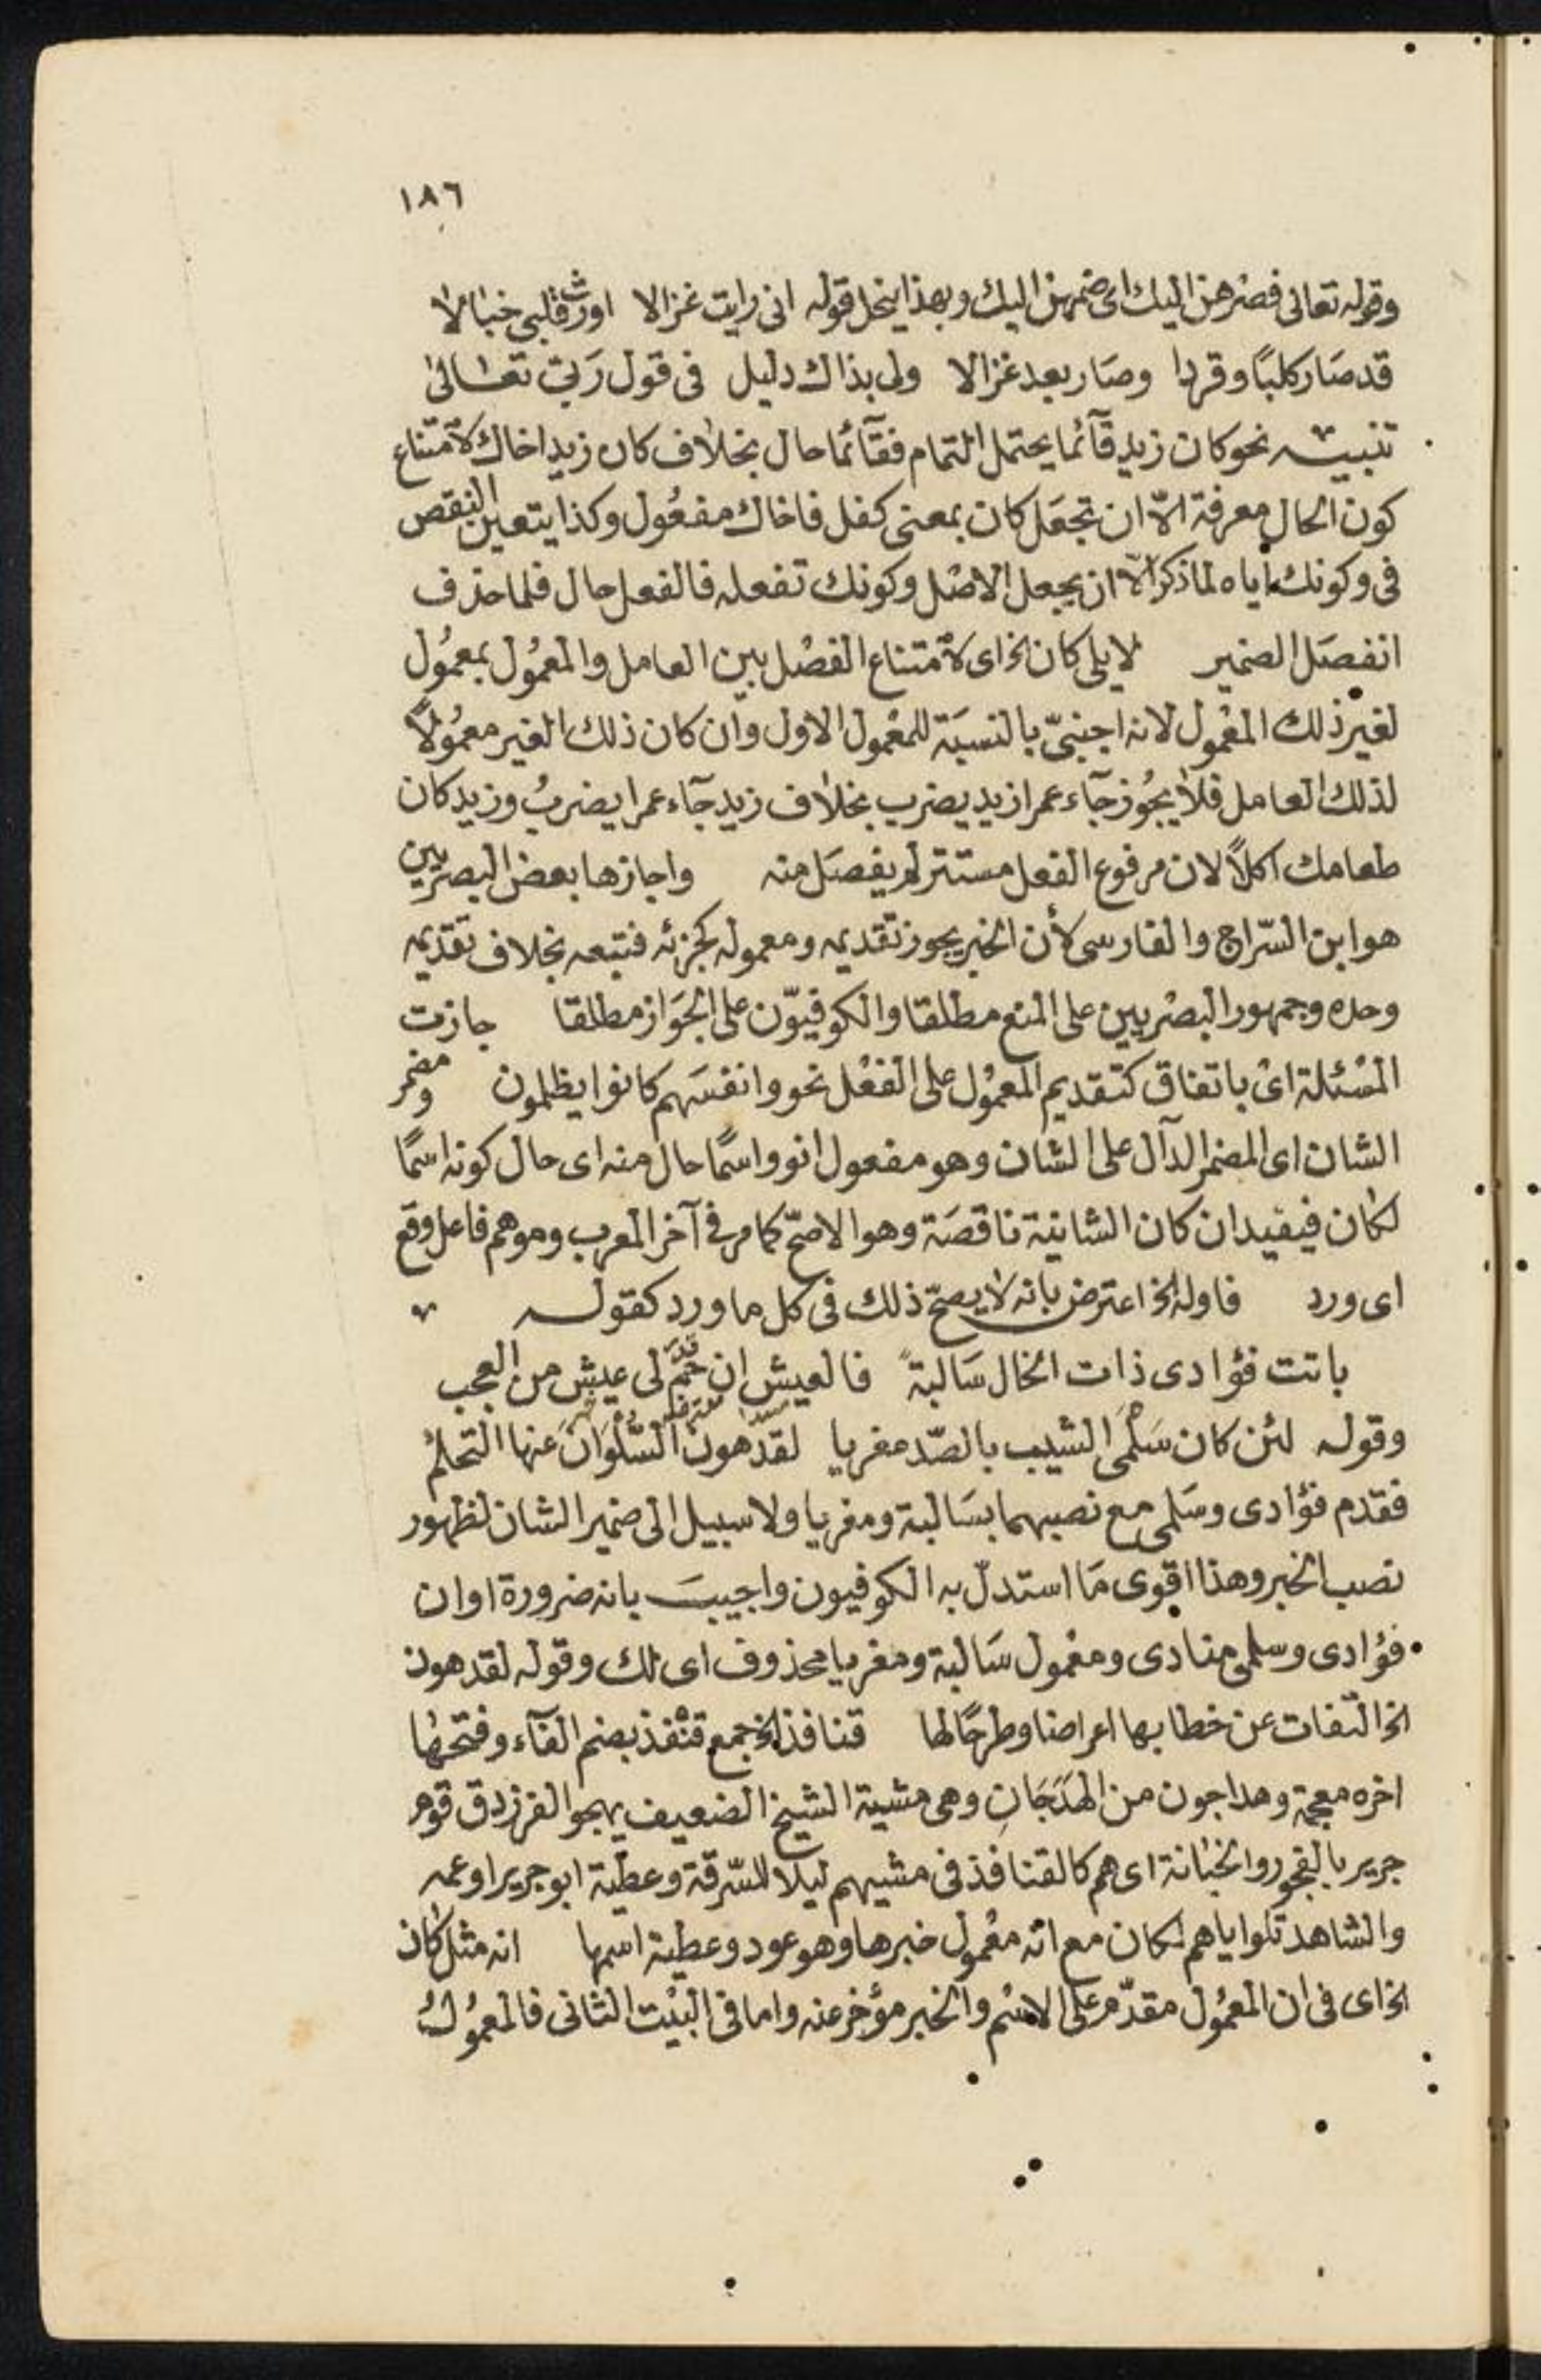 ١٨٦
وقوله تعالى فصرهن اليك اى ضمهن اليك وبهذا ينحل قوله انى رايت غزالا اورث قلبى خبالا
قد صار كلبًا وقردا وصار بعد غزالا ولى بذاك دليل فى قول رَبى تعالىٰ
تنبيه نحو كان زيد قآئما يحتمل التمام فقآئما حال بخلاف كان زيد اخاك لامتناع
كون الحال معرفة الّا ان تجعَل كان بمعنى كفل فاخاك مفعُول وكذا يتعين النقص
فى وكونك اياه لما ذكر الّا ان يجعل الاصْل وكونك تفعله فالفعل حال فلما حذف
انفصَل الضمير لا يلى كان الخ اى لامتناع الفصْل بين العامل والمعمُول بمعمُول
لغير ذلك المعْمول لانه اجنبىّ بالنسبَة للمعْمول الاول وان كان ذلك الغير معمُولاً
لذلك العامل فلا يجُوز جآء عمرا زيد يضرب بخلاف زيد جآء عمرا يضربُ وزيد كان
طعامك اكلاً لان مرفوع الفعل مستتر لم يفصَل منه واجازها بعض البصرْيين
هو ابن السّراج والفارسى لأن الخبر يجوز تقديمه ومعموله كجزئه فتبعه بخلاف تقديمه
وحده وجمهور البصْريين على المنع مطلقا والكوفيّون على الجَواز مطلقا جازت
المسْئلة اىْ باتفاق كتقديم المعمُول على الفعْل نحو وانفسَهم كانوا يظلمون ومضمر
الشان اى المضمر الدآل على الشان وهو مفعول انو واسمًا حال منه اى حال كونه اسمًا
لكان فيفيد ان كان الشانية ناقصَة وهو الاصحّ كما مر فى آخر المعرب وموهم فاعل وقع
اى ورد فاوله الخ اعترض بانه لا يصحّ ذلك فى كل ما ورد كقوله
باتت فؤادى ذات الخال سَالبةً فالعيش ان حُمّ لى عيش من العجب
قدّر
وقوله لئن كان سَلْمَى الشيب بالصّد مغريا لقد هون السُّلْوَانَ عنها التحلمُ
فقدم فؤادى وسَلمى مع نصبهما بسَالبة ومغريا ولا سبيل الى ضمير الشان لظهور
نصب الخبر وهذا اقوى مَا استدلّ به الكوفيون واجيبَ بانه ضرورة او ان
فؤادى وسلمى منادى ومعْمول سَالبة ومغريا محذوف اى لك وقوله لقد هون
الخ التفات عن خطابها اعراضا وطرحًا لها قنافذ الخ جمع قنْفذ بضم الفآء وفتحها
اخره معجمة وهداجون من الهَدَجَانِ وهى مشية الشيخ الضعيف يهجو الفرزدق قوم
جرير بالفجور والخيانة اى هم كالقنافذ فى مشيهم ليلا للسّرقة وعطيّة ابو جرير او عمه
والشاهد تلو اياهم لكان مع انه معْمول خبرها وهو عود وعطية اسمها انه مثل كان
الخ اى فى ان المعمُول مقدّم على الاسْم والخبر مؤخر عنه واما فى البيْت الثانى فالمعمُولُ